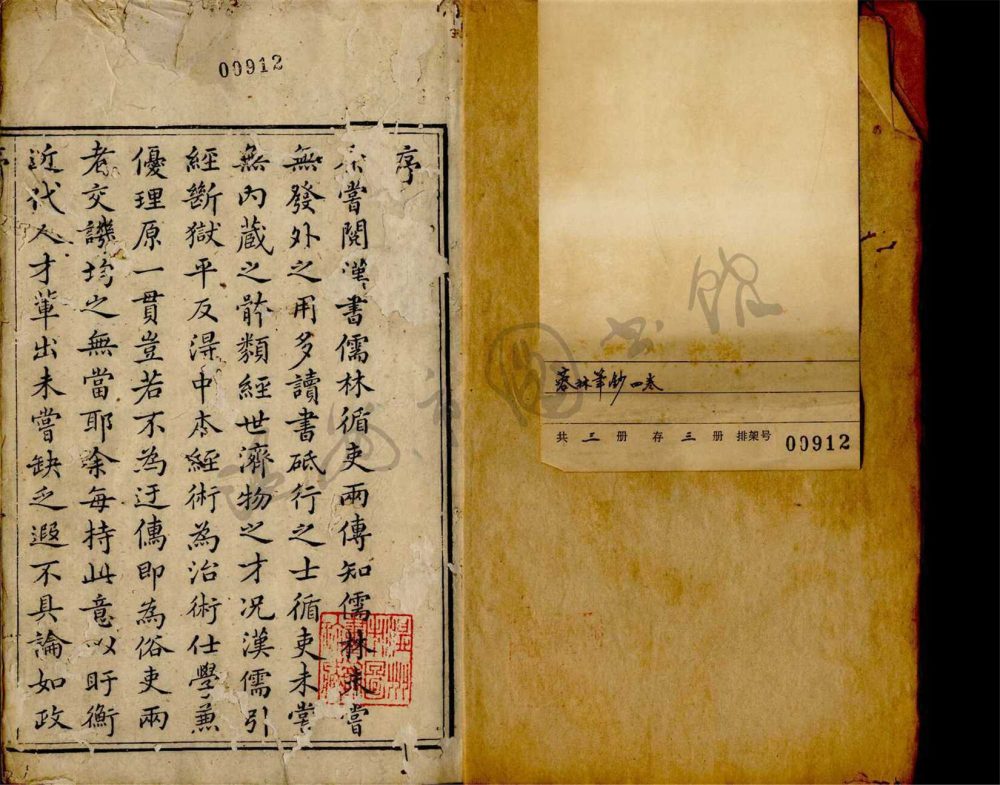 00912
序
嘗閱漢書儒林循吏兩傳知儒林未嘗
無發外之用多讀書砥行之士循吏未嘗
無内藏之骵類經世濟物之才况漢儒引
經斷獄平反淂中夲經術為治術仕學兼
優理原一貫豈若不為迂儁即為俗吏兩
者交譏均之無當耶余每持此意以盱衡
近代人才軰出未嘗缺乏遐不具論如政
蓉林笔鈔四卷
共 三 册 存 三 册 排架号 00912
圖書館